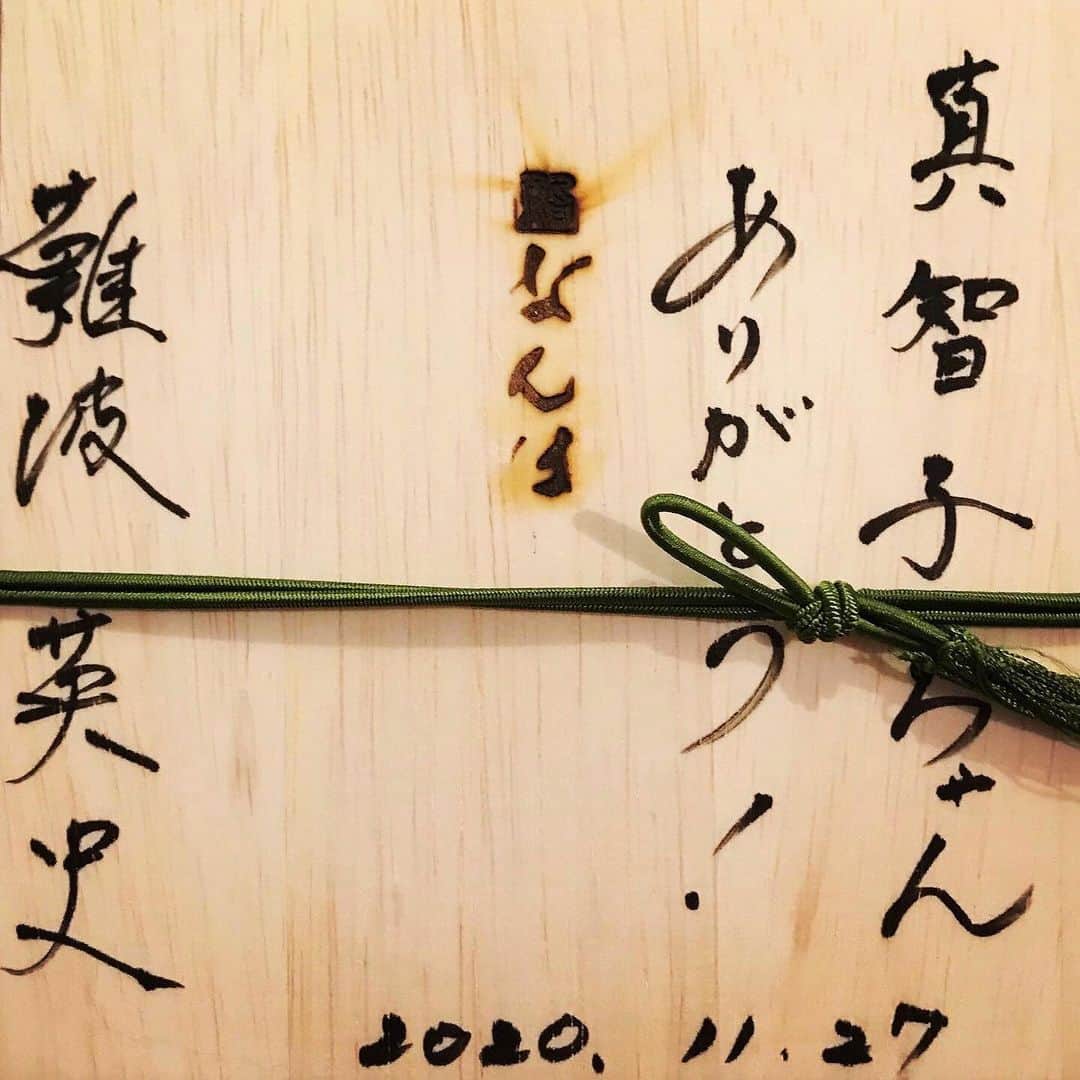 真智子ちゃん
ありがとう!
鮨なんば
難波英史
2020.11.27